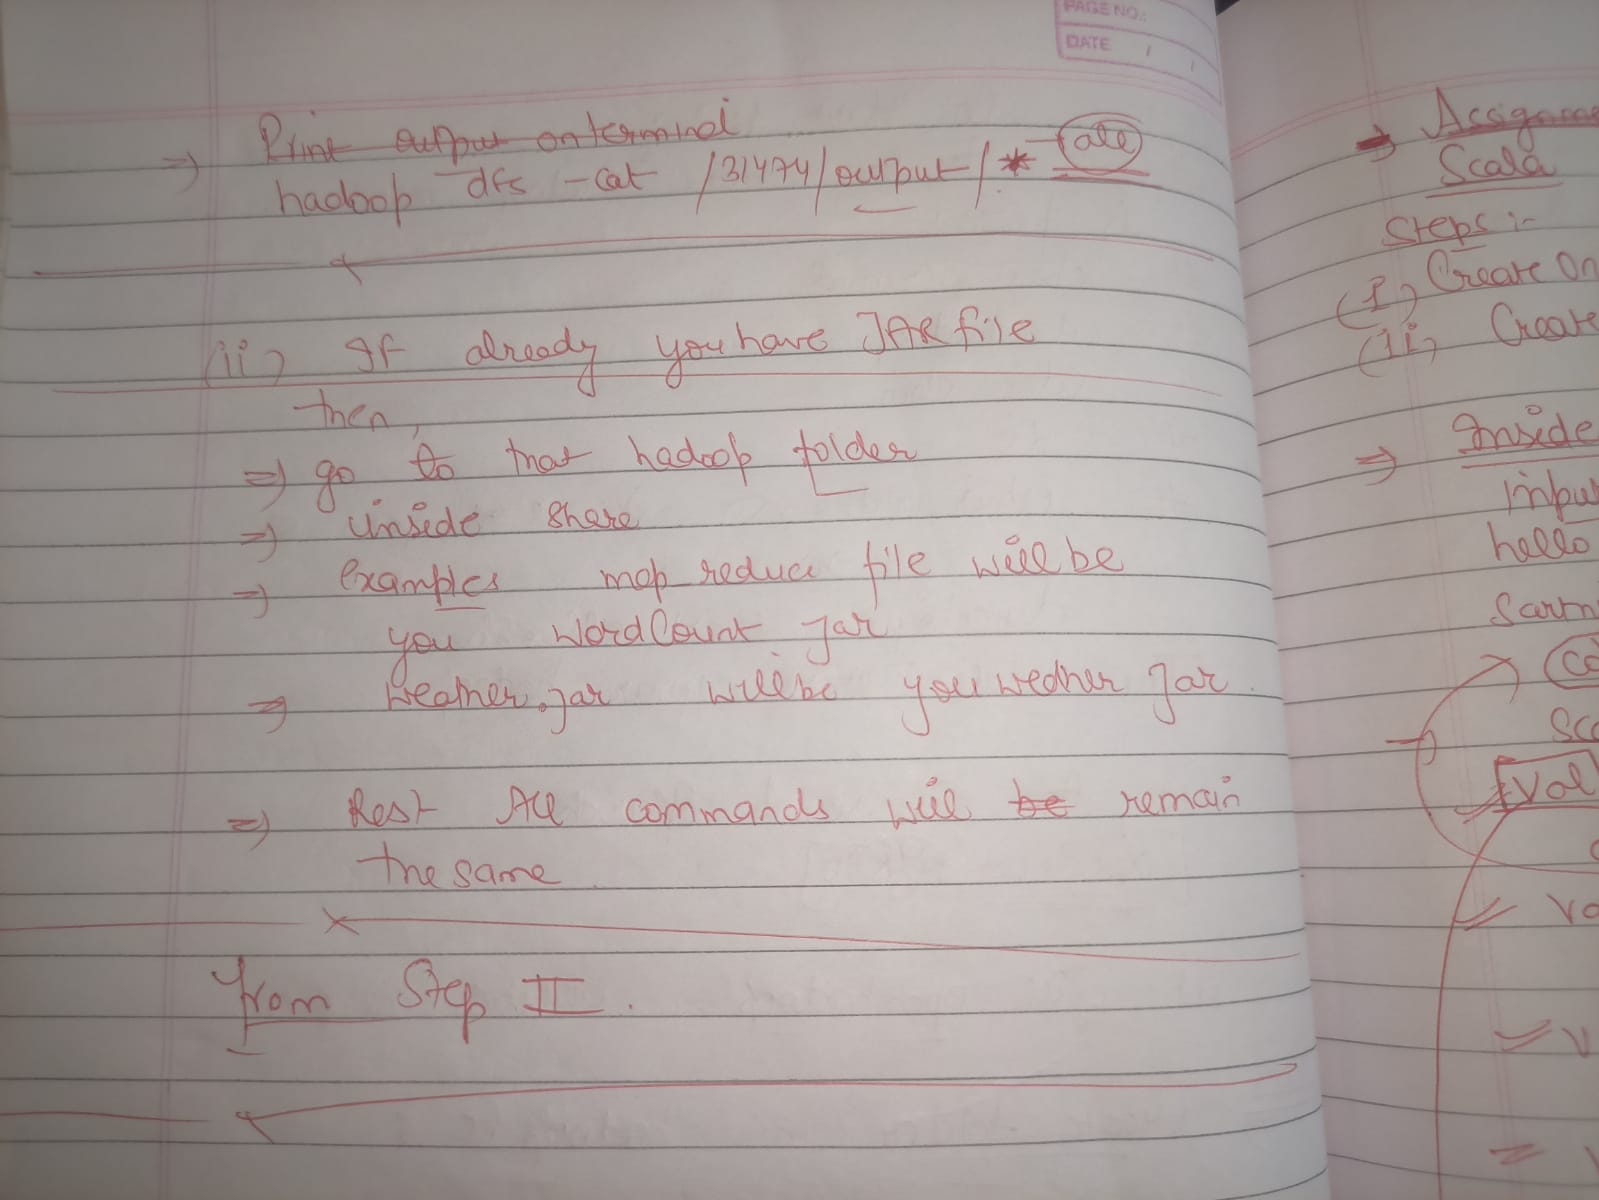 PAGE NO.:
DATE / /
=) Print output on terminal
hadoop dfs -cat /31474/output/* all
(ii) If already you have JAR file
then,
=) go to that hadoop folder
=) inside share
=) examples map reduce file will be
you WordCount jar
=) Weather.jar will be you weather Jar.
=) Rest All commands will be remain
the same.
from Step II.
Scala
Steps :-
(I) Create On
(ii) Create
=) Inside
hello
Val